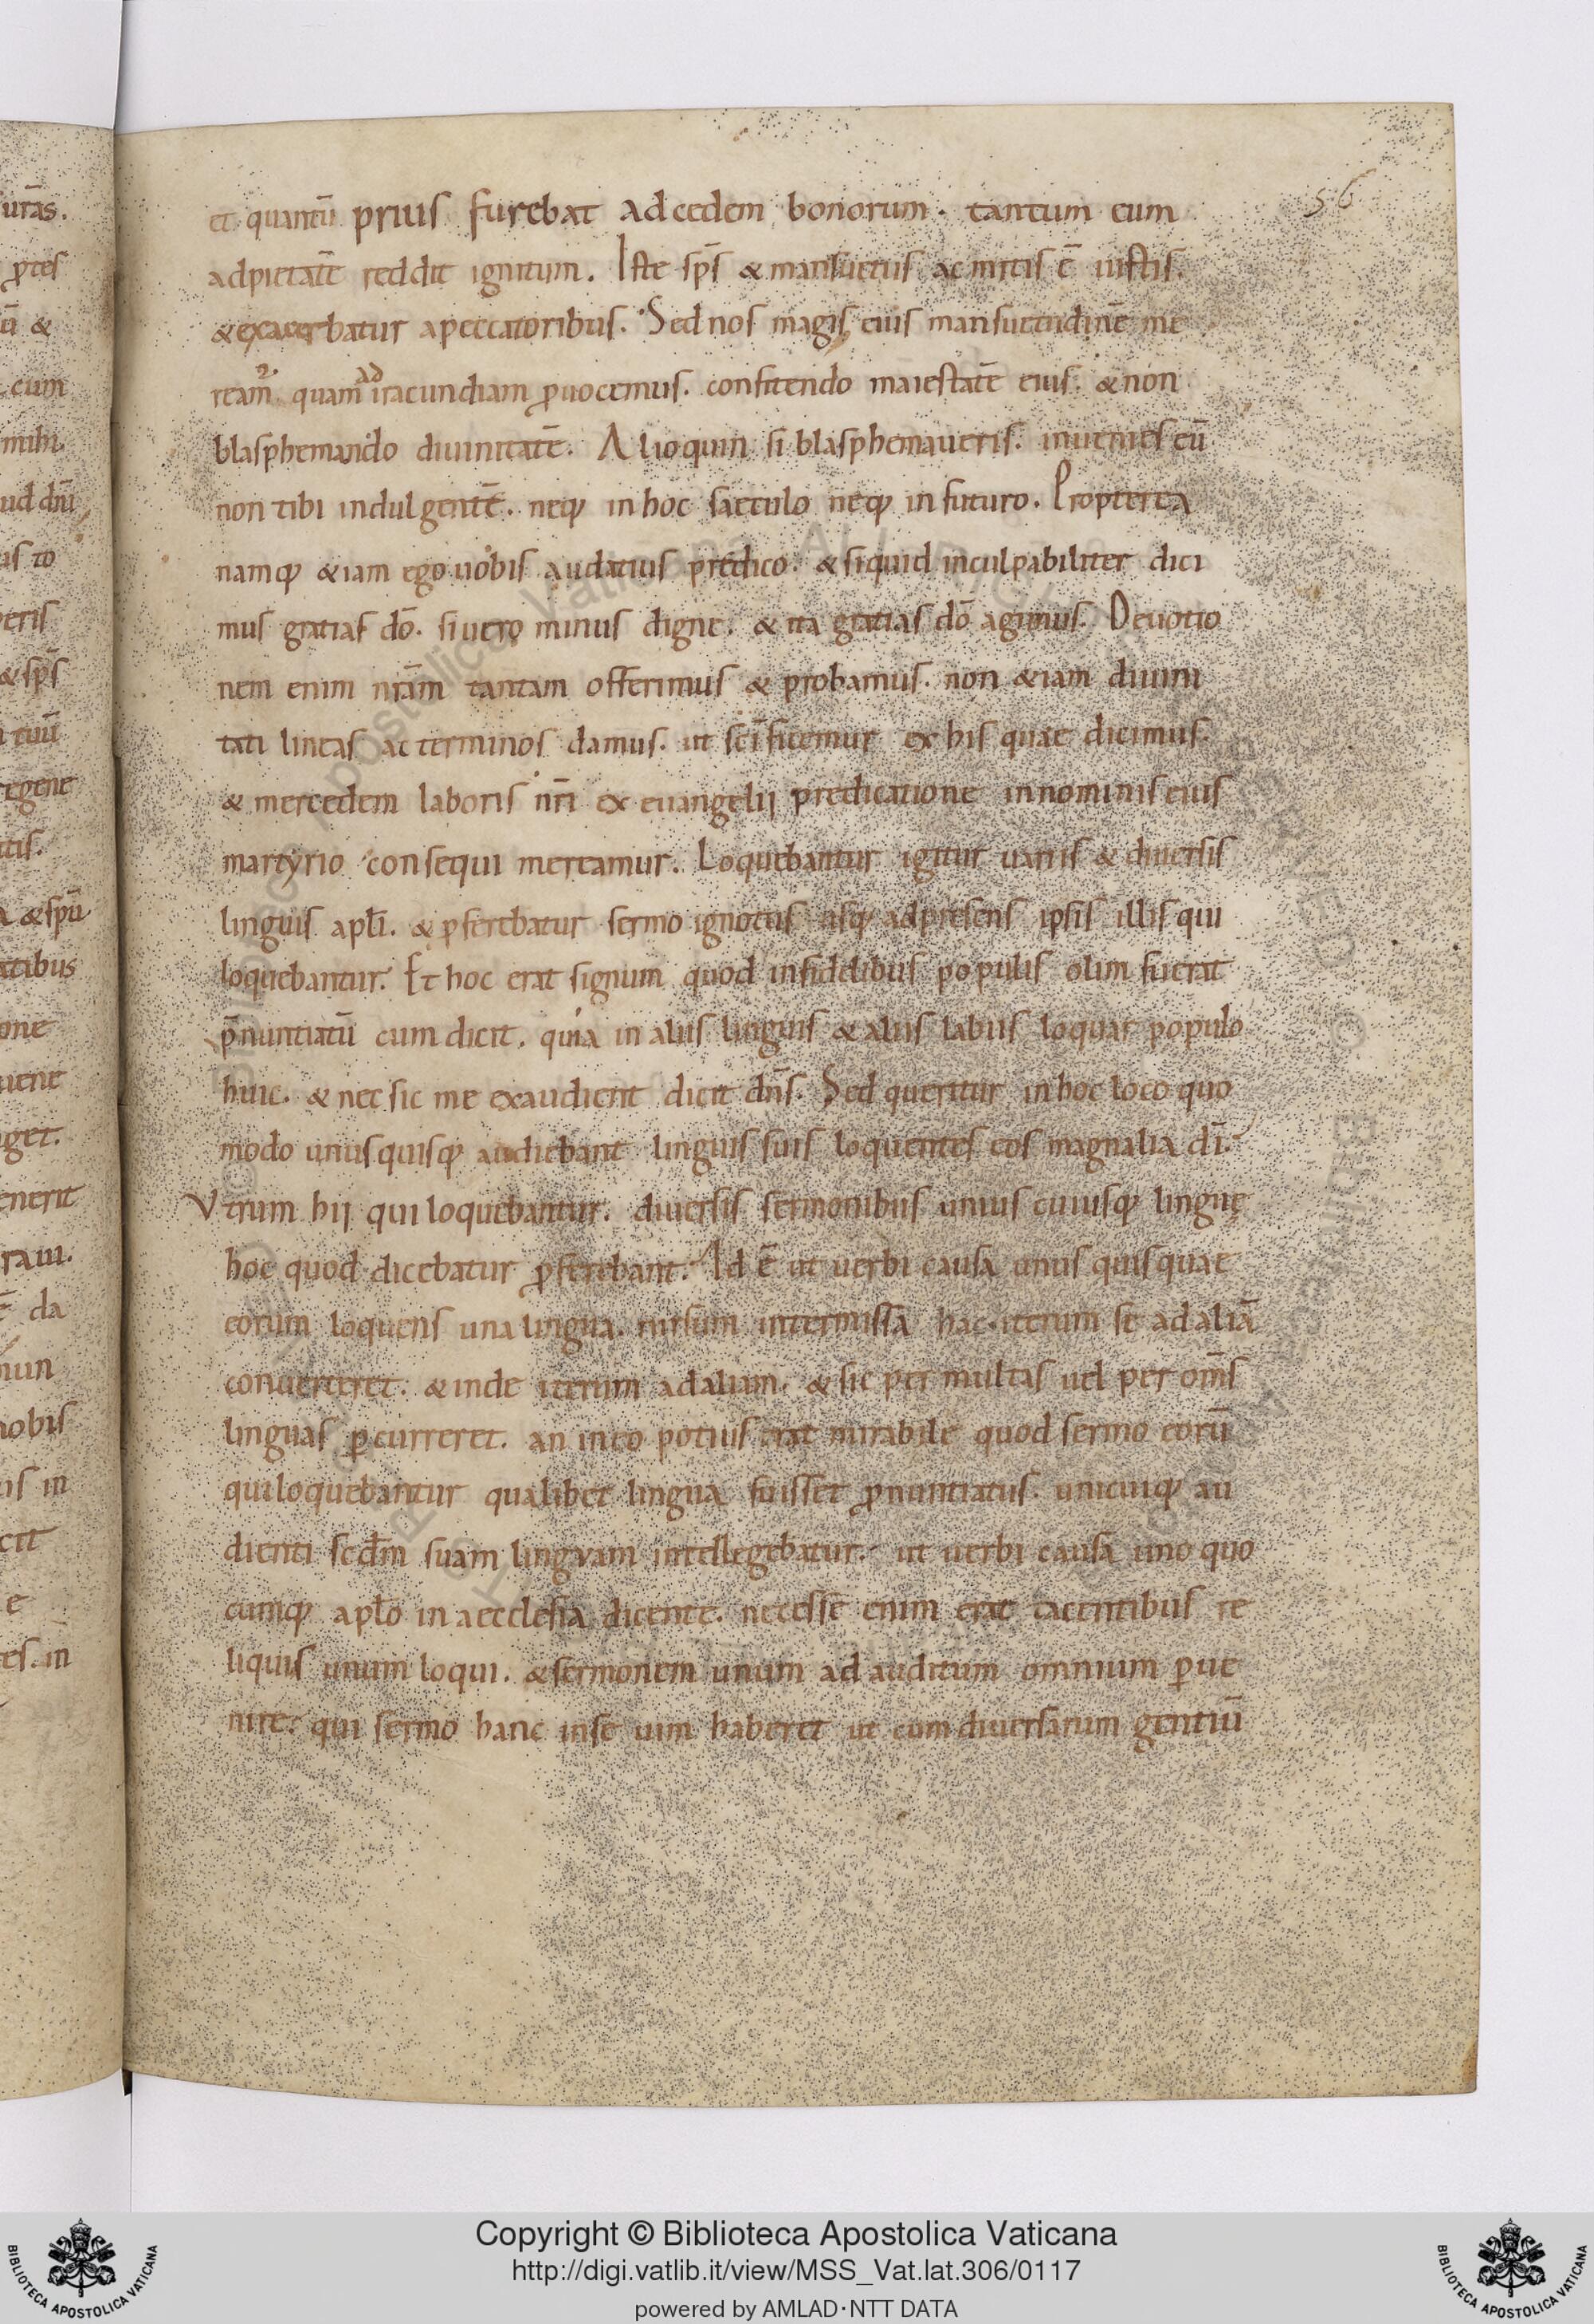 56
et quantū prius furebat ad cedem bonorum. tantum eum
ad pietatē reddit ignitum. Iste sp̄s & mansuetus ac mitis ē iustis.
& exacerbatur a peccatoribus. Sed nos magis eius mansuetudinē me
ream̄. quam ad iracundiam ꝓuocemus. confitendo maiestatē eius. & non
blasphemando diuinitatē. Alioquin si blasphemaueris. inuenies eū
non tibi indulgentē. neq; in hoc saeculo neq; in futuro. Propterea
namq; & iam ego uobis audatius predico. & siquid inculpabiliter dici
mus gratias dō. si uero minus digne. & ita gratias dō agimus. Deuotio
nem enim nr̄am tantam offerimus & probamus. non & iam diuini
tati lineas ac terminos damus. ut sc̄ificemur ex his quae dicimus.
& mercedem laboris nr̄i ex euangelij predicatione in nominis eius
martyrio consequi mereamur. Loquebantur igitur uariis & diuersis
linguis apl̄i. & ꝓferebatur sermo ignotus usq; ad presens ipsis illis qui
loquebantur. Et hoc erat signum quod infidelibus populis olim fuerat
p̄nuntiatū cum dicit. quia in aliis linguis & aliis labiis loquar populo
huic. & nec sic me exaudient dicit dn̄s. Sed queritur in hoc loco quo
modo unusquisq; audiebant linguis suis loquentes eos magnalia dī.
Vtrum hij qui loquebantur. diuersis sermonibus unius cuiusq; linguę
hoc quod dicebatur ꝓferebant. Id ē ut uerbi causa unus quisquae
eorum loquens una lingua. rursum intermissa hac iterum se ad aliā
conuerteret. & inde iterum ad aliam. & sic per multas uel per om̄s
linguas ꝑcurreret. an in eo potius erat mirabile quod sermo eorū
qui loquebantur qualibet lingua fuisset ꝓnuntiatus. unicuiq; au
dienti scd̄m suam linguam intellegebatur. ut uerbi causa uno quo
cumq; apl̄o in aecclesia dicente. necesse enim erat tacentibus re
liquis unum loqui. & sermonem unum ad auditum omnium ꝑue
nire. qui sermo hanc in se uim haberet ut cum diuersarum gentiū
Copyright © Biblioteca Apostolica Vaticana
http://digi.vatlib.it/view/MSS_Vat.lat.306/0117
powered by AMLAD·NTT DATA
BIBLIOTECA APOSTOLICA VATICANA
BIBLIOTECA APOSTOLICA VATICANA